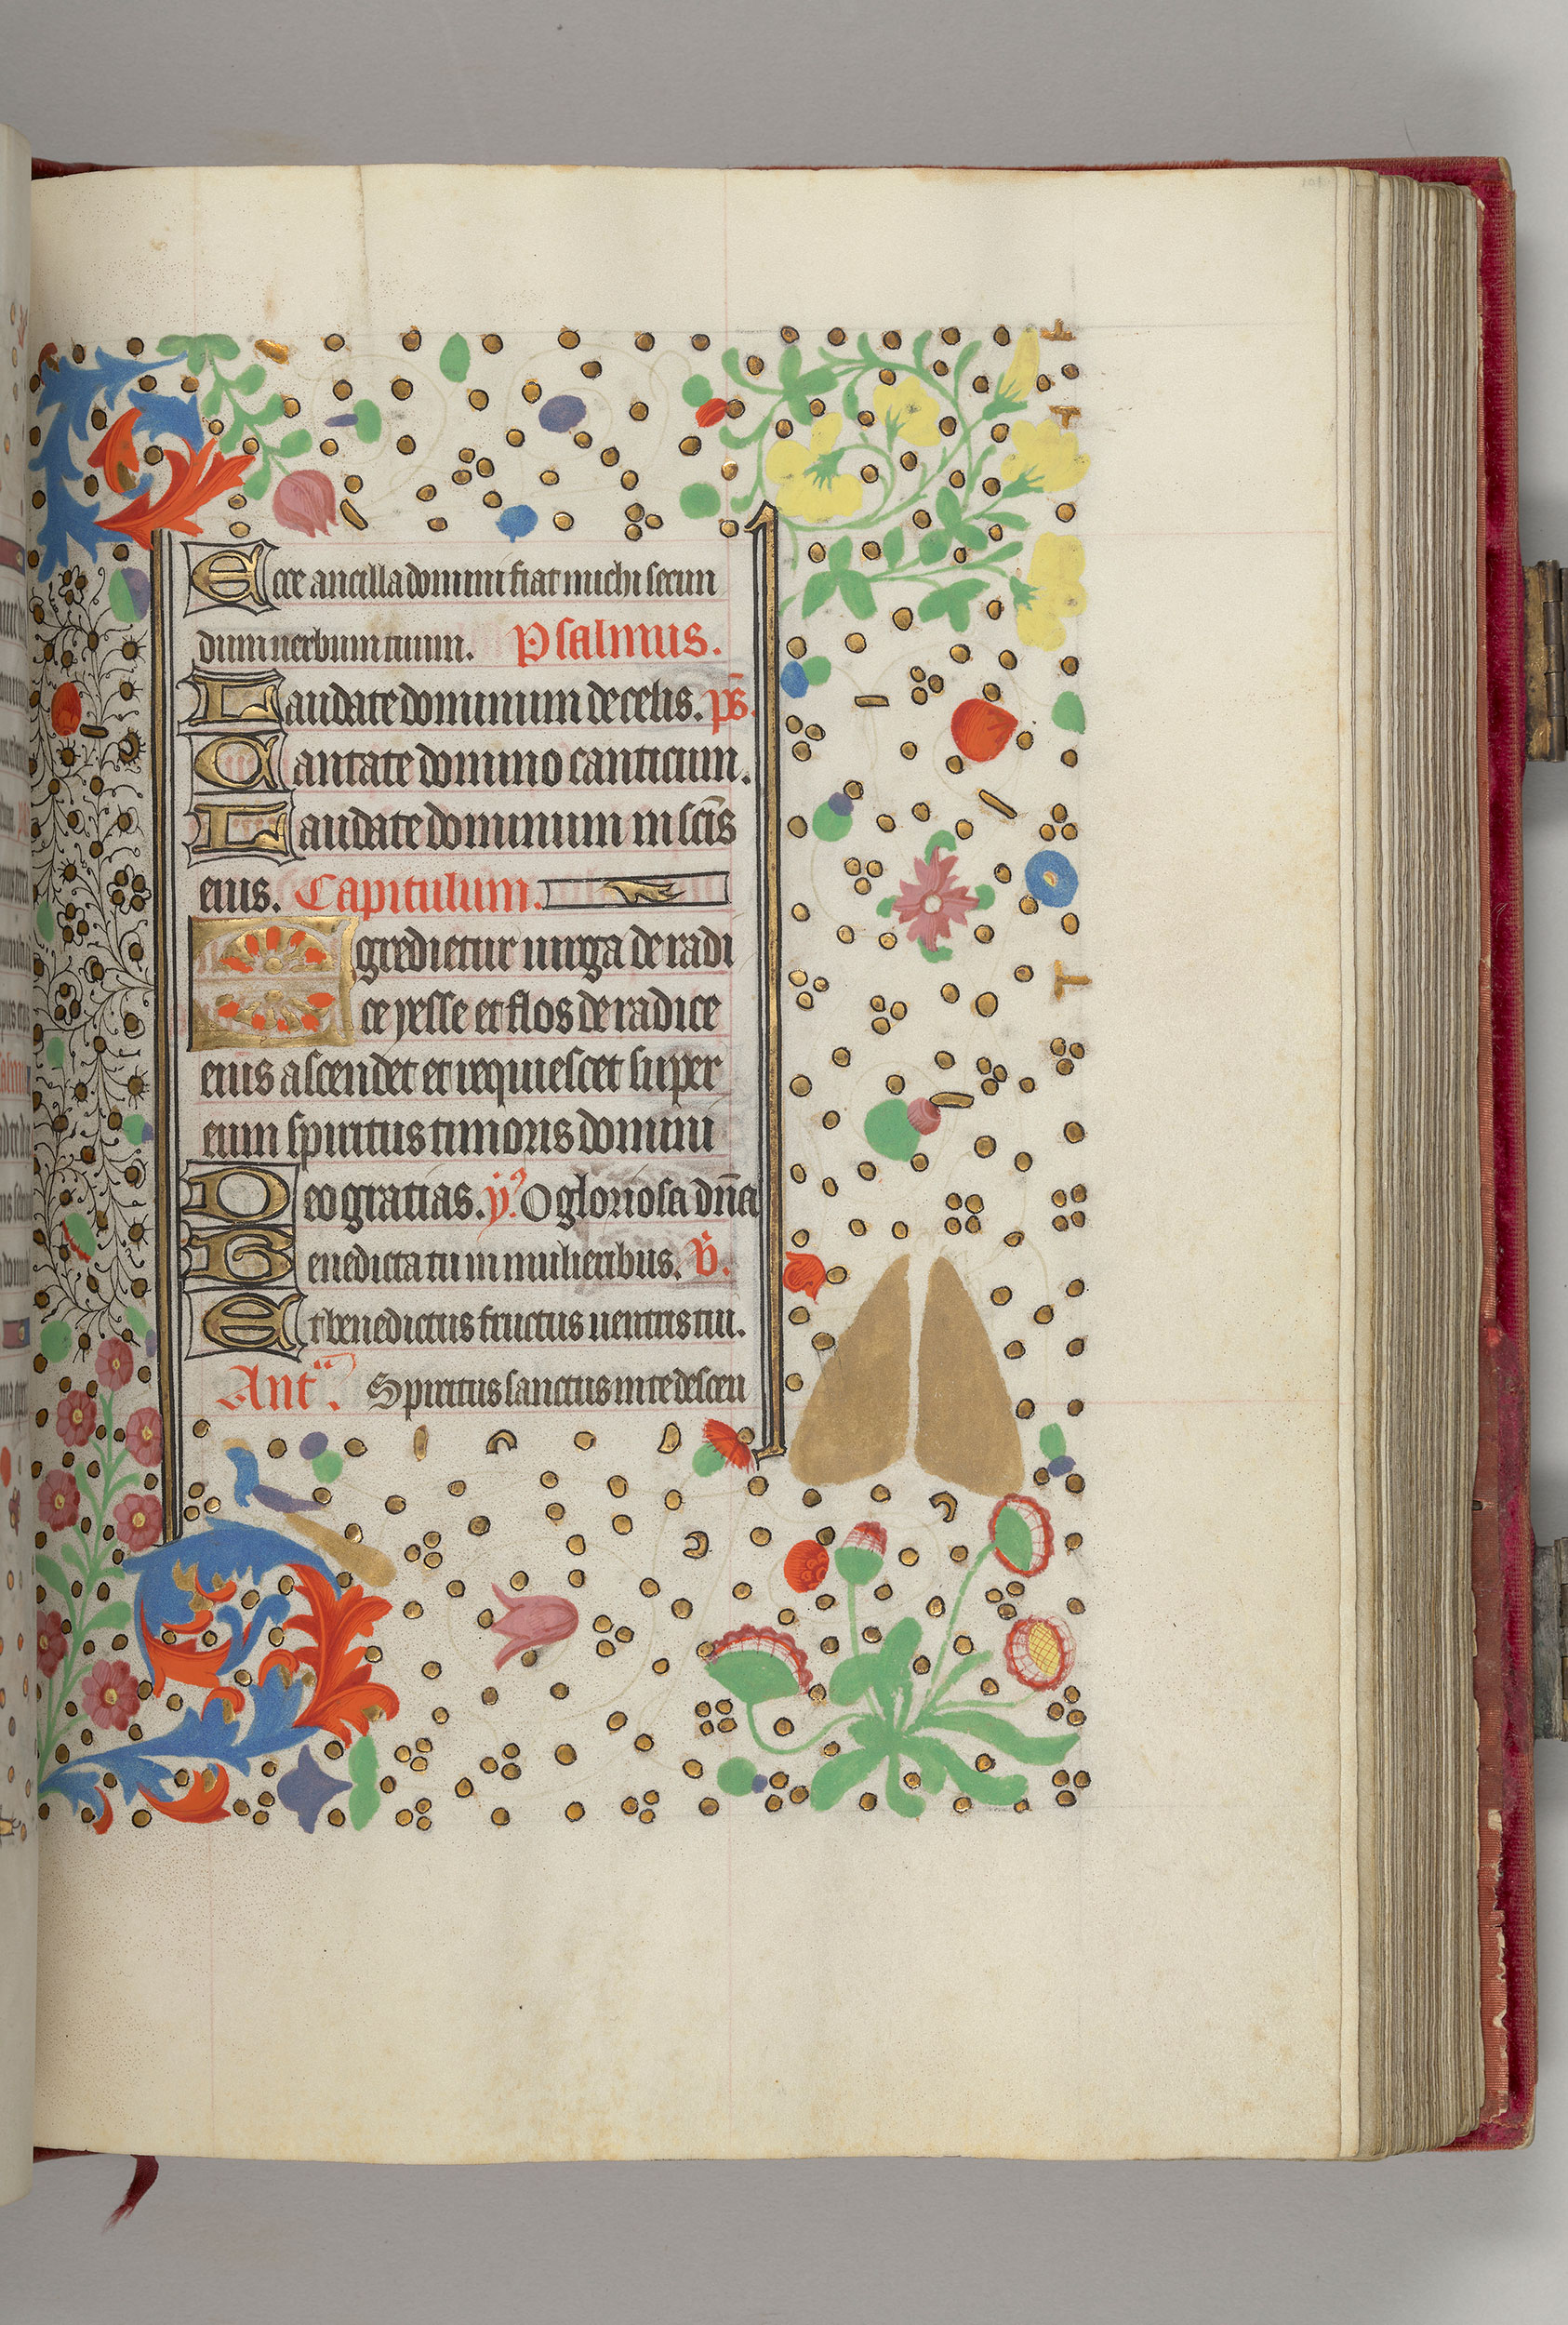 Ecce ancilla domini fiat michi secun
dum uerbum tuum. Psalmus.
Laudate dominum de celis. ps̄.
Cantate domino canticum.
Laudate dominum in sc̄is
eius. Capitulum.
Egredietur uirga de radi
ce yesse et flos de radice
eius ascendet et requiescet super
eum spiritus timoris domini
Deo gratias. ỹ. O gloriosa dn̄a
Benedicta tu in mulieribus. ℟.
Et benedictus fructus uentris tui.
Anta. Spiritus sanctus in te descen